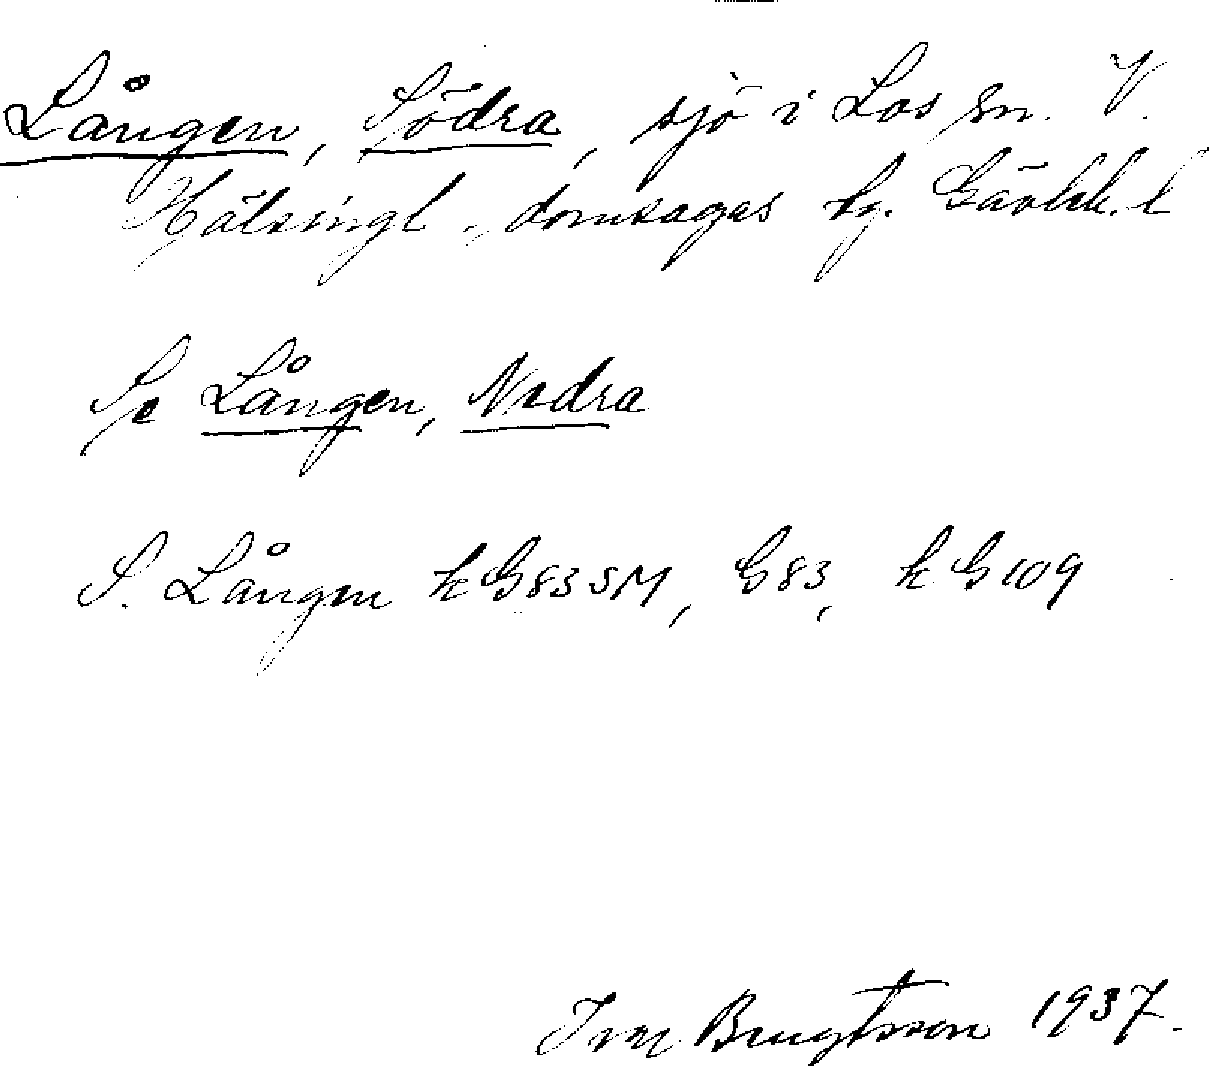 Lången, Södra, sjö i Los sn. V.
Hälsingl. domsagas tg. Gävleb. l
Se Lången, Nodra
S. Lången kG83SM, G83, kG109
Ivar Bengtsson 1937.